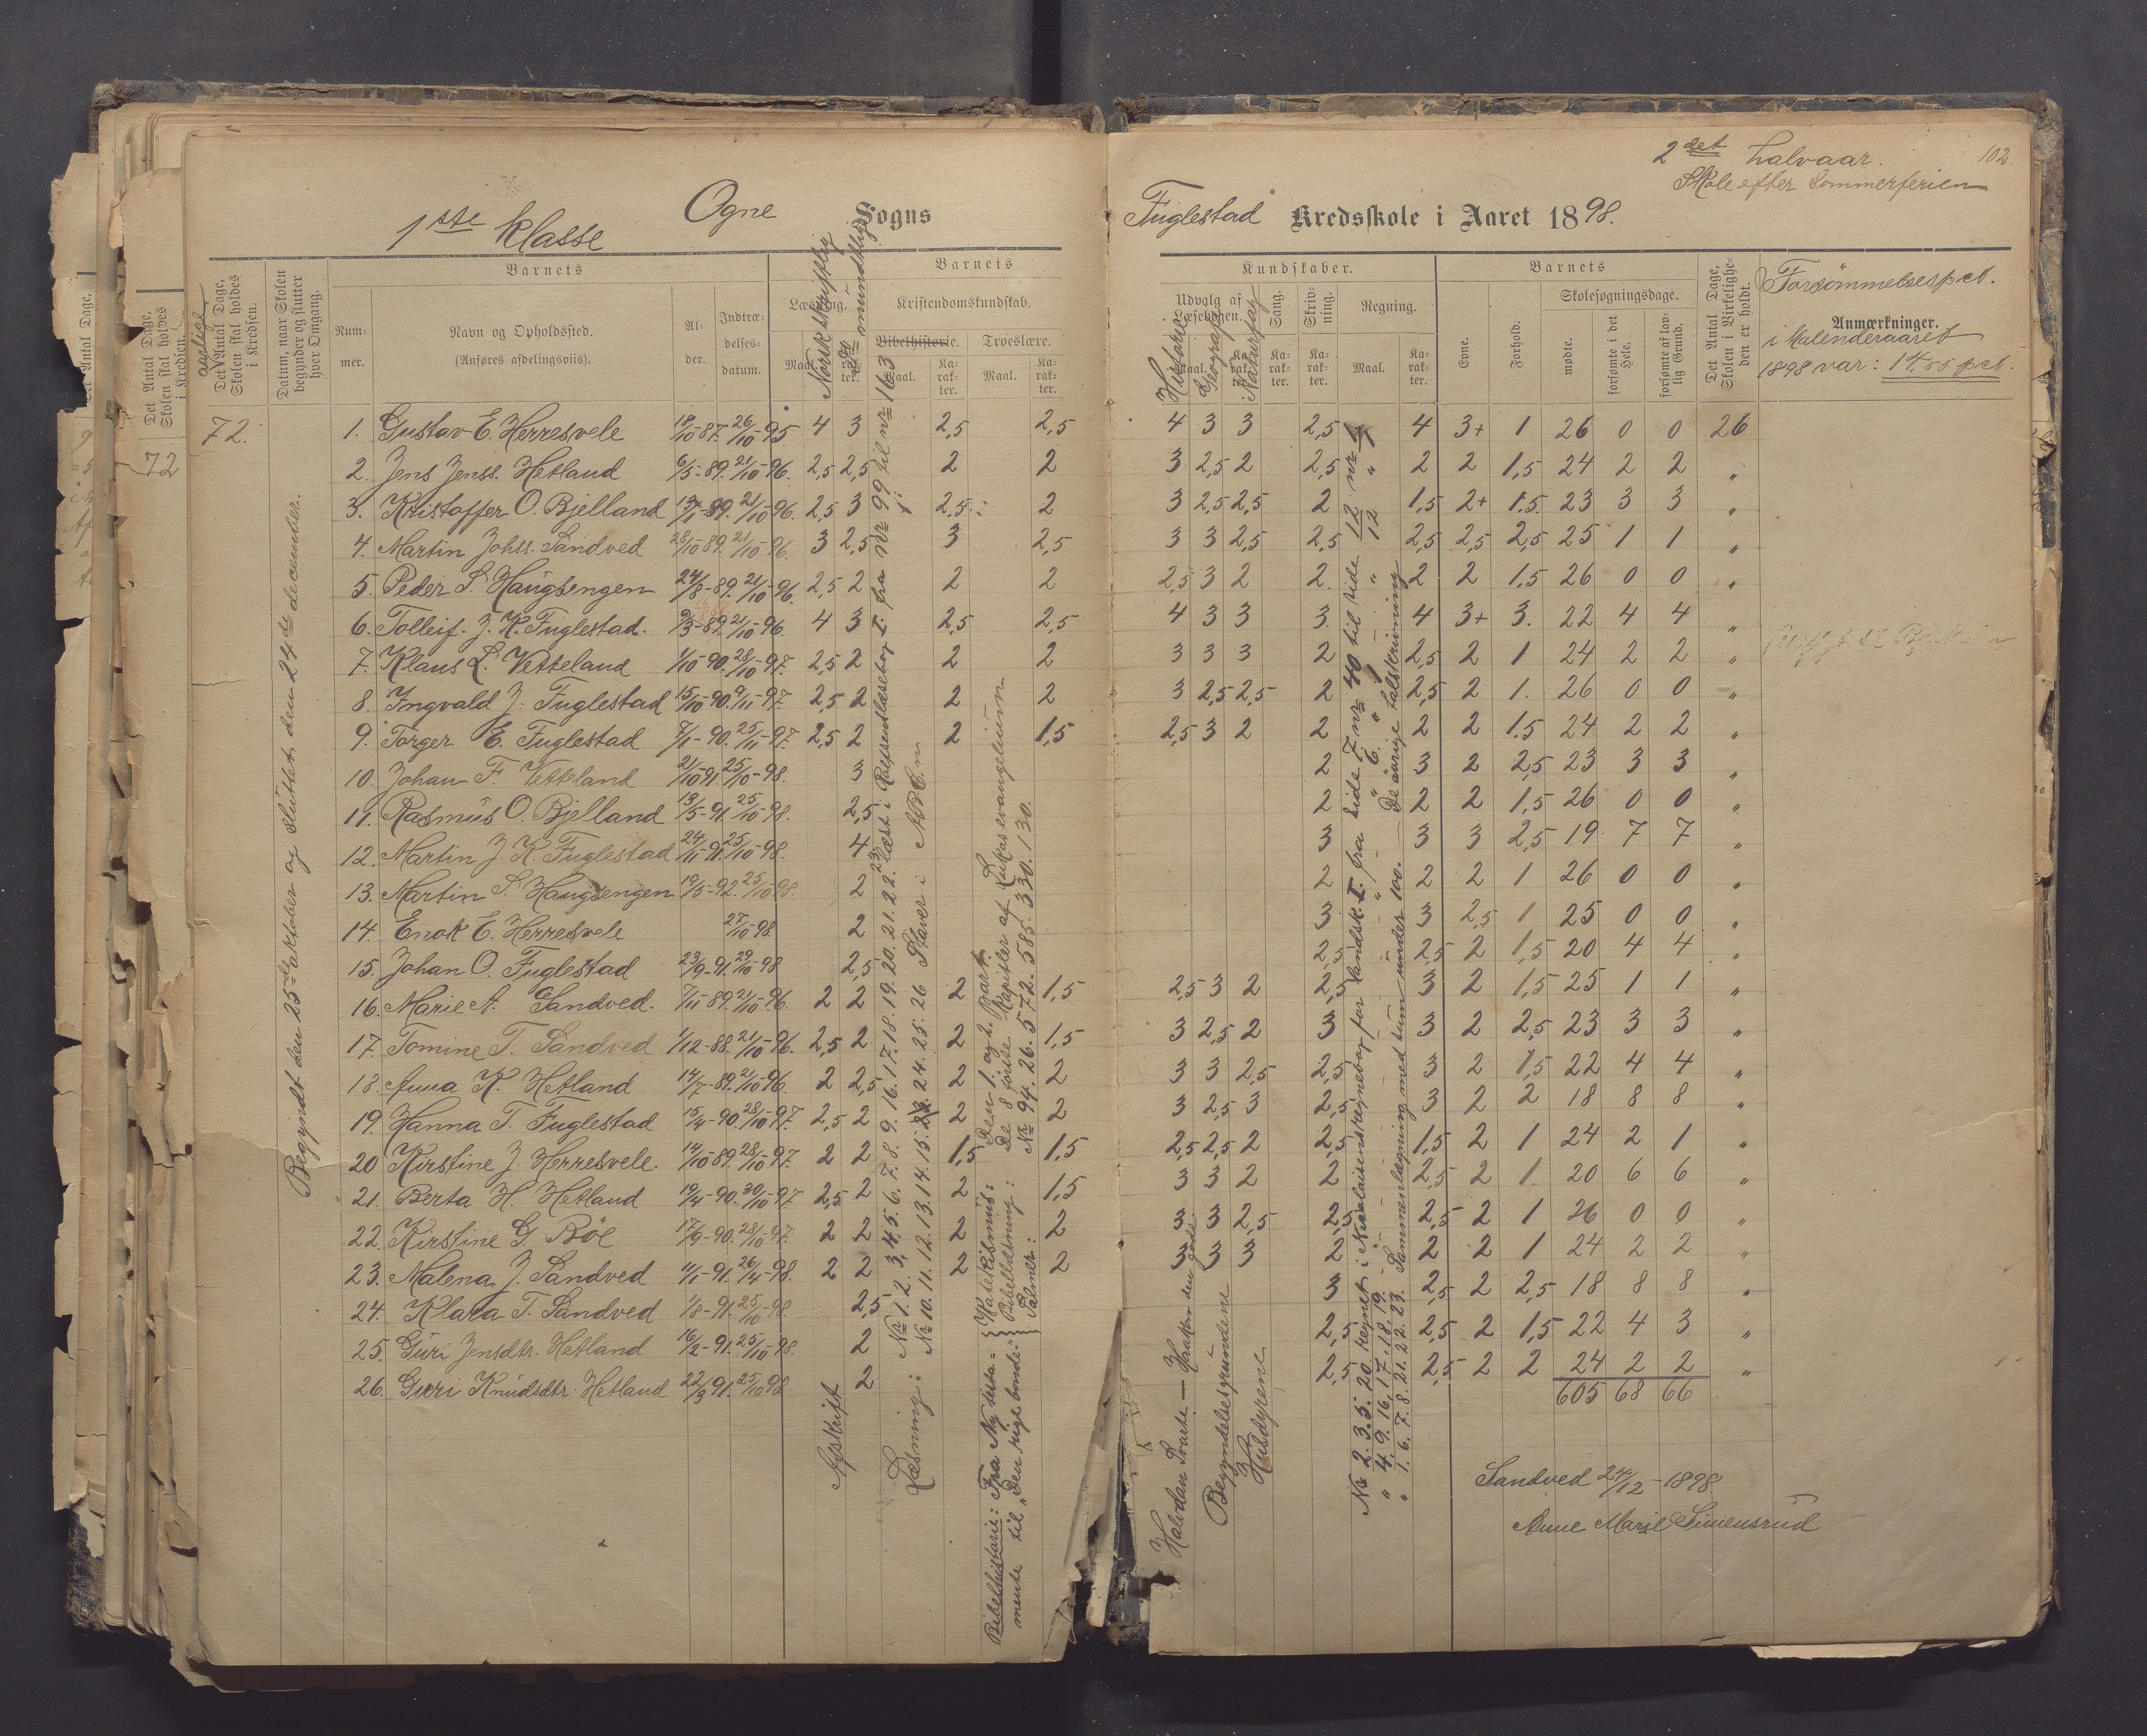 2det halvaar.
102.
Skole efter Sommerferien
1ste klasse
Ogne Sogns
Fuglestad Kredsskole i Aaret 1898.
Det Antal Dage, Skolen skal holdes i Kredsen.
72
aarlige
Det Antal Dage, Skolen skal holdes i Kredsen.
Datum, naar Skolen begynder og slutter hver Omgang.
Barnets
Nummer.
Navn og Opholdssted.
(Anføres afdelingsviis).
Alder.
Indtrædelsesdatum.
Barnets
Læsning.
Norsk skriftlig
mundtlig
Kristendomskundskab.
Bibelhistorie.
Troeslære.
Maal.
Karakter.
Maal.
Karakter.
Kundskaber.
Udvalg af Læsebogen.
Historie
Geografi
Naturfag
Sang.
Skrivning.
Regning.
Maal.
Karakter.
Barnets
Evne.
Forhold.
Skolesøgningsdage.
mødte.
forsømte i det Hele.
forsømte af lovlig Grund.
Det Antal Dage, Skolen i Virkeligheden er holdt.
Forsømmelsespct.
Anmærkninger.
i Kalenderaaret
1898 var: 14.55 pct.
72.
Begyndt den 25de oktober og sluttet den 24de december.
1. Gustav E. Herresvele 18/10-87. 26/10-95 4 3 2,5 2,5 4 3 3 2,5 4 3+ 1 26 0 0 26
2. Jens Jenss. Hetland 6/5-89. 21/10-96. 2,5 2,5 2 2 3 2,5 2 2,5 2 2 1,5 24 2 2 "
3. Kristoffer O. Bjelland 13/1-89. 21/10-96. 2,5 3 2,5 2 3 2,5 2,5 2 1,5 2+ 1.5. 23 3 3 "
4. Martin Johss. Sandved 28/10 89. 21/10-96. 3 2,5 3 2,5 3 3 2,5 2,5 2,5 2,5 2,5 25 1 1 "
5. Peder S. Haugsengen 24/8-89. 21/10-96. 2,5 2 2 2 2,5 3 2 2. 2 2 1.5 26 0 0 "
6. Tolleif. J. K. Fuglestad. 9/3-89. 21/10-96. 4 3 2,5 2,5 4 3 3 3. 4 3+ 3. 22 4 4 "
7. Klaus L. Vetteland 1/10-90. 28/10-97. 2,5 2 2 2 3 3 3 2 2,5 2 1 24 2 2 "
8. Ingvald J. Fuglestad 15/10-90. 9/11-97. 2,5 2 2 2 3 2,5 2,5 2 2,5 2 1. 26 0 0 "
9. Torger E. Fuglestad 7/1-90. 25/11-97. 2,5 2 2 1,5 2,5 3 2 2 2 2 1.5 24 2 2 "
10. Johan F. Vetteland 21/10 91. 25/10-98. 3 2 3 2 2,5 23 3 3 "
11. Rasmus O. Bjelland 13/5-91. 25/10-98. 2,5 2 2 2 1,5 26 0 0 "
12. Martin J. K. Fuglestad 24/11-91. 25/10-98. 4 3 3 3 2,5 19 7 7 "
13. Martin S. Haugsengen 19/5-92. 25/10 98. 2 2 2 2 1 26 0 0 "
14. Enok E. Herresvele 27/10-98. 2 3 3 2,5 1 25 0 0 "
15. Johan O. Fuglestad 23/9-91. 29/10-98 2,5 2,5 2,5 2 1,5 20 4 4 "
16. Marie A. Sandved. 7/11-89. 21/10-96. 2 2 2 1,5 2,5 3 2 2,5 3 2 1,5 25 1 1 "
17. Tomine T. Sandved 1/12-88. 21/10-96. 2,5 2 2 1,5 3 2,5 2 3 3 2 2,5 23 3 3 "
18. Anna K. Hetland 14/7-89. 21/10 96. 2 2,5 2 2 3 3 2,5 2,5 3 2 1,5 22 4 4 "
19. Hanna T. Fuglestad 15/4-90. 28/10-97. 2,5 2 2 2 3 2,5 3 2,5 3 2 2 18 8 8 "
20 Kirstine J. Herresvele. 14/10 89. 28/10-97. 2 2 1,5 1,5 2,5 2,5 2 2,5 1,5 2 1 24 2 1 "
21. Berta H. Hetland 19/4-90. 30/10-97 2,5 2 2 1,5 3 3 2 2 2,5 2 1. 20 6 6 "
22. Kirstine G. Bøe 17/9-90. 28/10-97. 2 2 2 2 3 3 2,5 2,5 2,5 2 1 26 0 0 "
23. Malena J. Sandved 11/1-91. 26/4-98. 2 2 2 2 3 3 3 2 2 2 1 24 2 2 "
24. Klara T. Sandved 1/8-91. 25/10-98. 2,5 3 2,5 2 2,5 18 8 8 "
25. Guri Jensdtr. Hetland 16/2-91. 25/10-98. 2 2,5 2,5 2 1,5 22 4 3 "
26. Guri Knudsdtr. Hetland 22/3 91. 25/10 98 2 2,5 2,5 2 2 24 2 2 "
605 68 66
Afskrift
Læsning: Nr 1. 2. 3. 4. 5. 6. 7. 8. 9. 16. 17. 18. 19. 20. 21. 22. 23 læst i Rolfsens læsebog I. fra Nr 99 til nr 163
Nr 10. 11. 12. 13. 14. 15. 24. 25. 26 Staver i ABC.n
Bibelhistorie: Fra Ny testamente til "Den rige bonde."
Katekismus: Den 1. og 2. Part.
Bibellæsning: De 8 første Kapitler af Lukas evangelium
Salmer: Nr 94. 26. 572. 585. 330. 130.
Halvdan Svarte — Haakon den gode.
Begyndelsesgrundene
Husdyrene
Nr 2. 3. 5. 20 regnet i Nicolaisens regnebog for Landsk. I. fra side 7 nr 40 til side 12 nr 4
" 4. 9. 16. 17. 18. 19. " " " " 6. " " 12 "
" 1. 6. 7. 8. 21. 22. 23. Sammenlægning med tum under 100. — De øvrige talskrivning
Sandved 24/12-1898
Anne Marie Simensrud